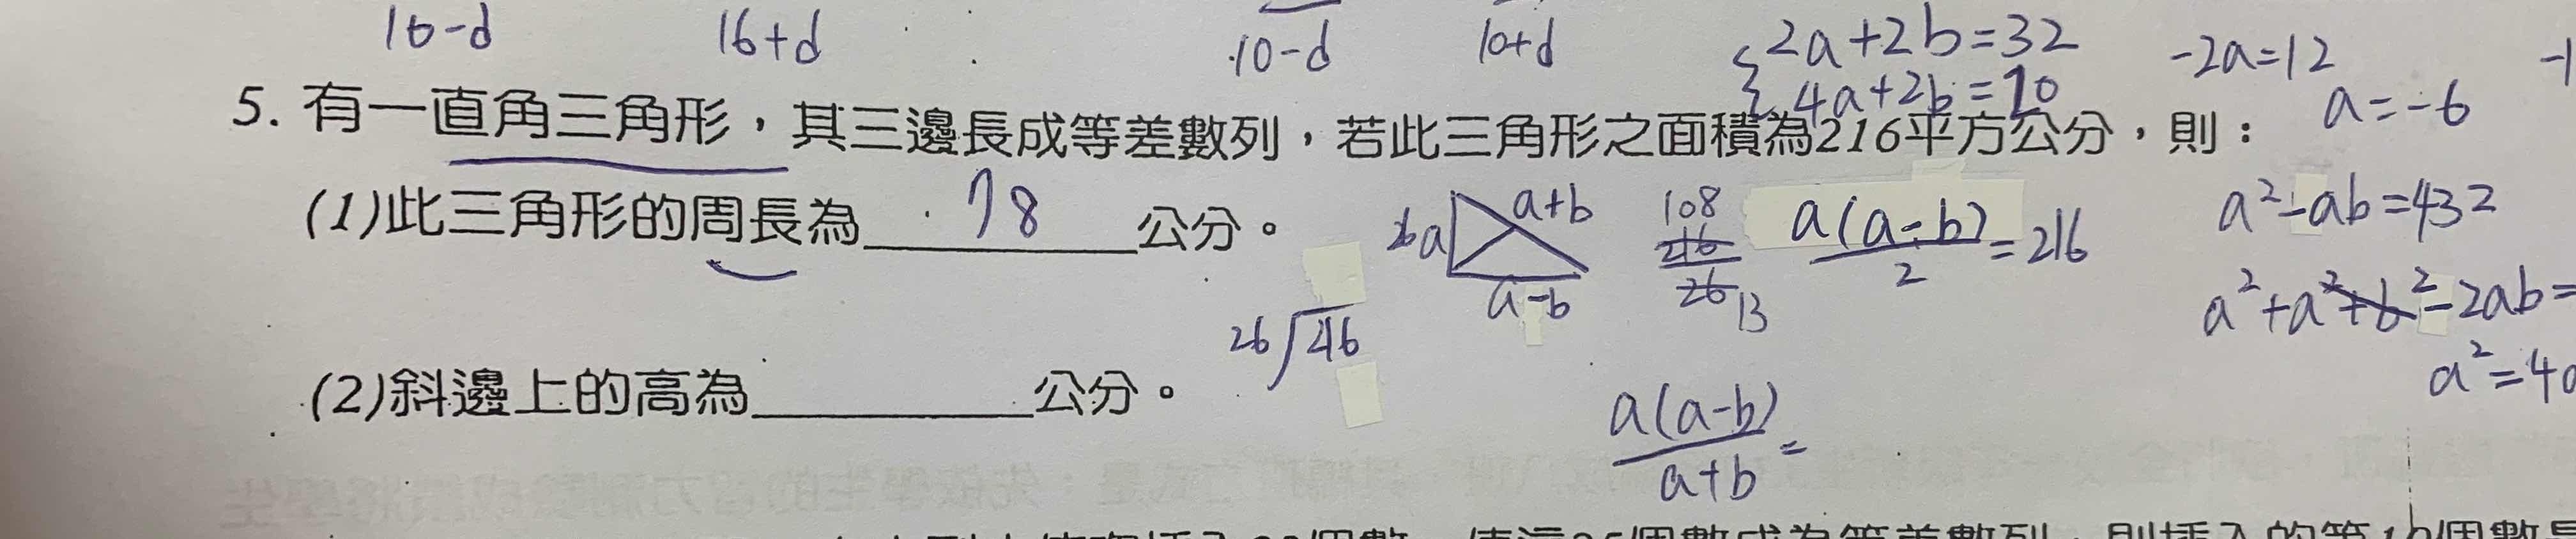 16-d 16+d 10-d 10+d 2a+2b=32 -2a=12 -1
4a+2b=10 a=-6
5. 有一直角三角形，其三邊長成等差數列，若此三角形之面積為216平方公分，則：
(1)此三角形的周長為 78 公分。
a a+b a-b
108 216 26 13
a(a-b)/2=216
a²-ab=432
a²+a²+b²-2ab=
a²=40
26 216
(2)斜邊上的高為 公分。
a(a-b)/a+b=